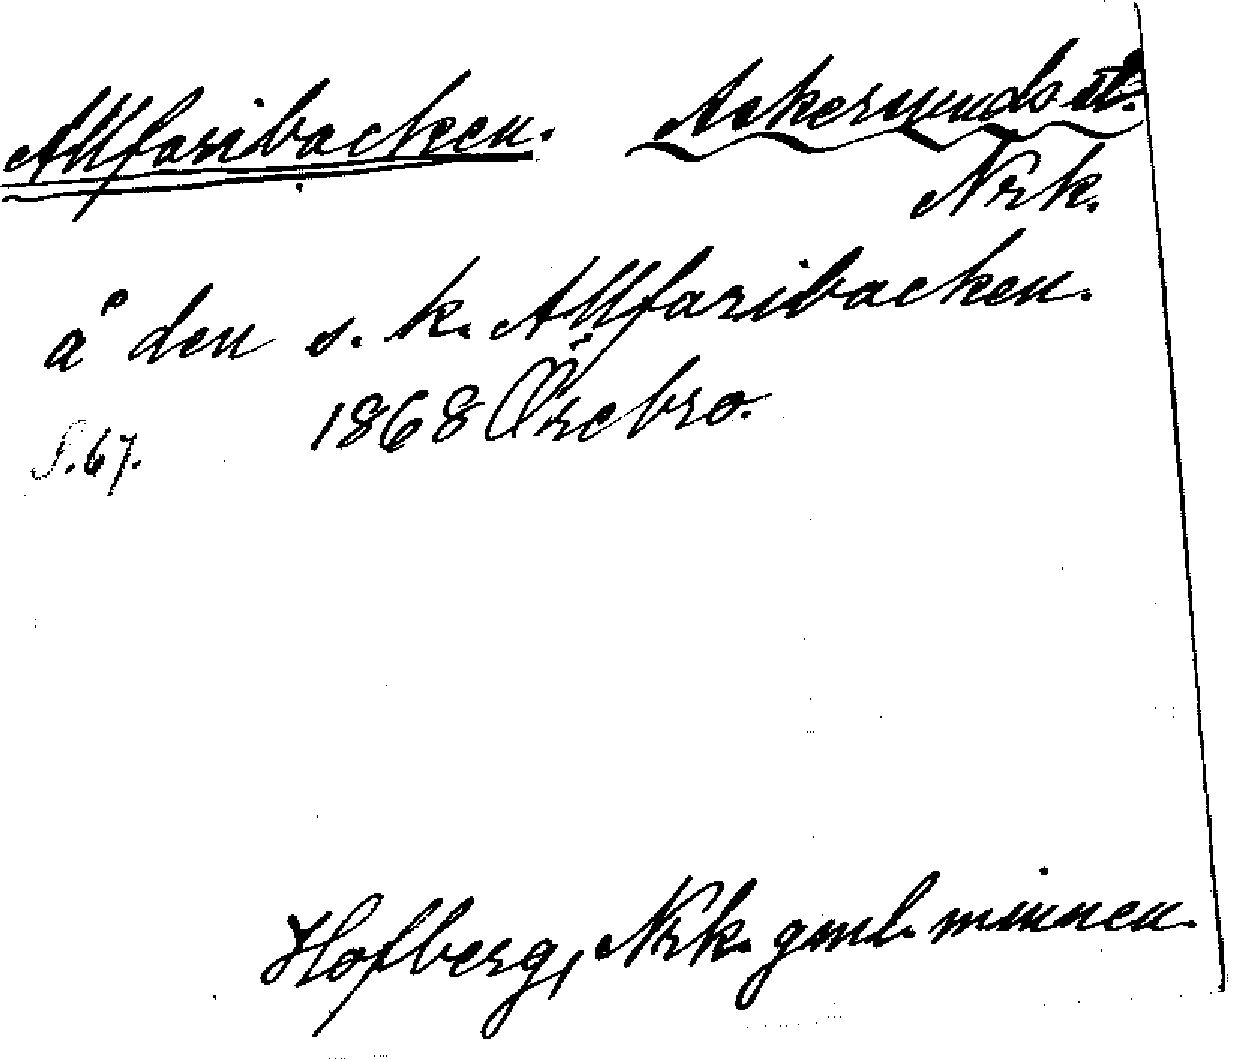 Allfaribacken. Askersunds st.
Nrk.
å den s. k. Allfaribacken.
1868 Örebro.
S. 67.
Hofberg, Nrk. gml. minnen.